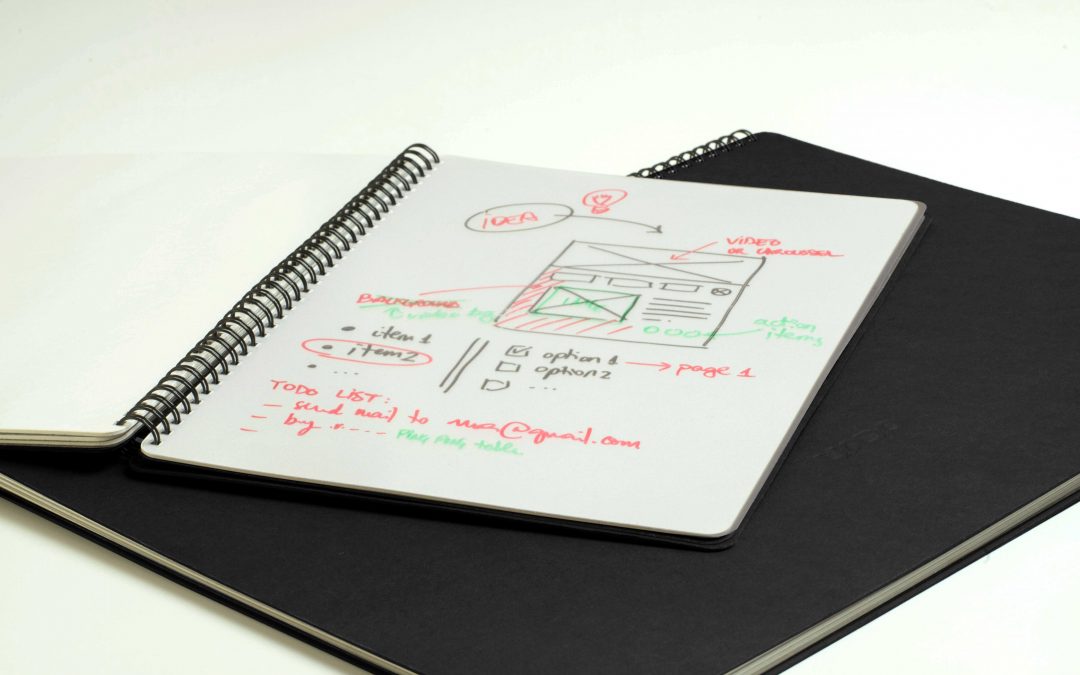 iDEA
ViDEO
OR CAROUSEL
BACKGROUND
video bg
action
items
item 1
item 2
...
option 1 → page 1
option 2
...
TODO LIST:
– send mail to
@gmail.com
– buy ... PING PONG table
–